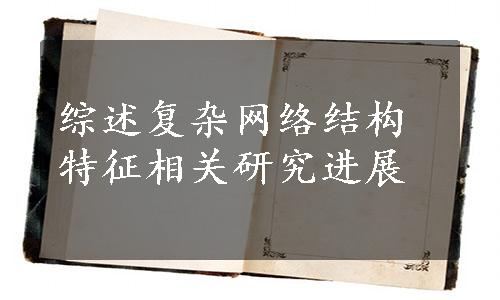 综述复杂网络结构
特征相关研究进展